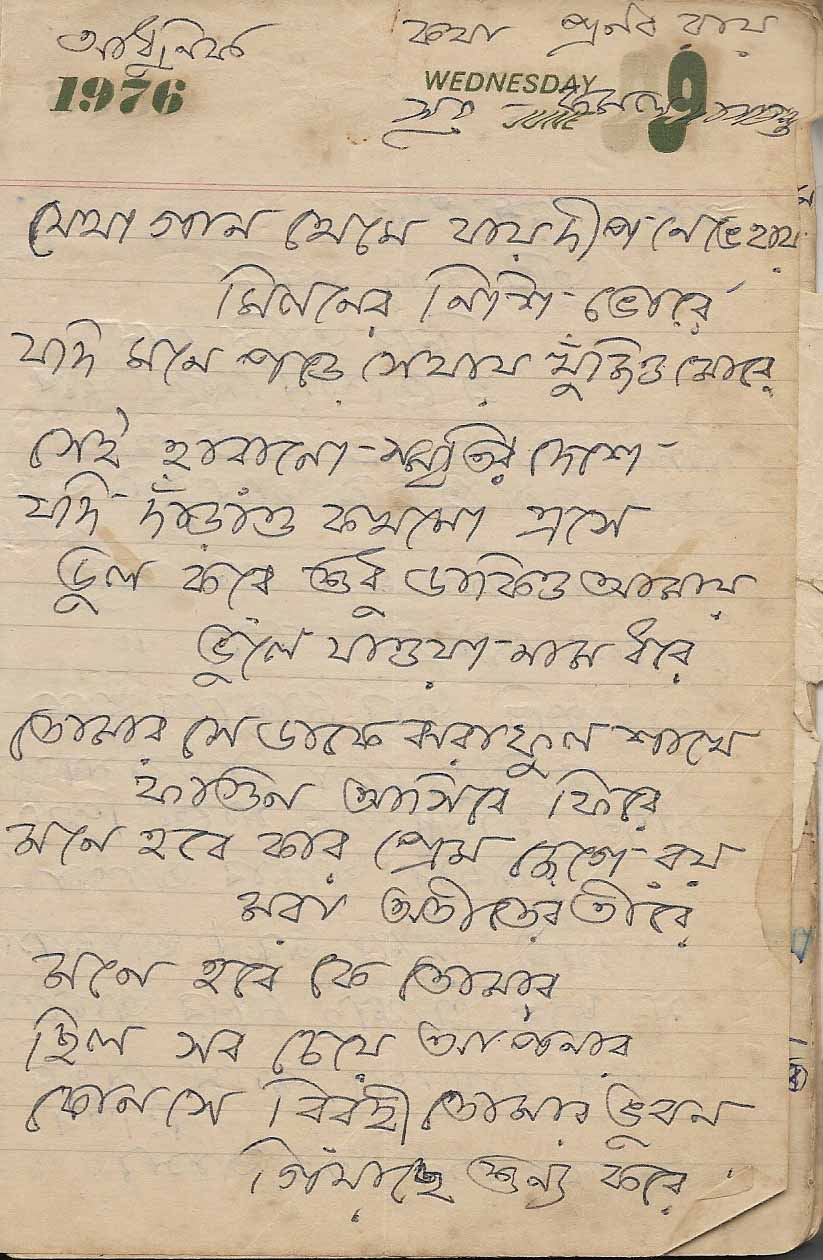 আধুনিক
কথা প্রনব রায়
1976
WEDNESDAY 9
JUNE
সুর -
যেথা গান থেমে যায় দীপ নেভে হায়
মিলনের নিশি ভোরে
যদি মনে পড়ে সেথায় খুঁজিও মোরে
সেই হারানো স্মৃতির দেশে
যদি দাঁড়াও কখনো এসে
ভুল করে শুধু ডাকিও আমায়
ভুলে যাওয়া নাম ধরে
তোমার সে ডাকে ঝরাফুল শাখে
ফাগুন আসিবে ফিরে
মনে হবে কার প্রেম জেগে রয়
মরা অতীতের তীরে
মনে হবে কে তোমার
ছিল সব চেয়ে আপনার
কোন সে বিরহী তোমার ভুবন
গিয়াছে শুন্য করে